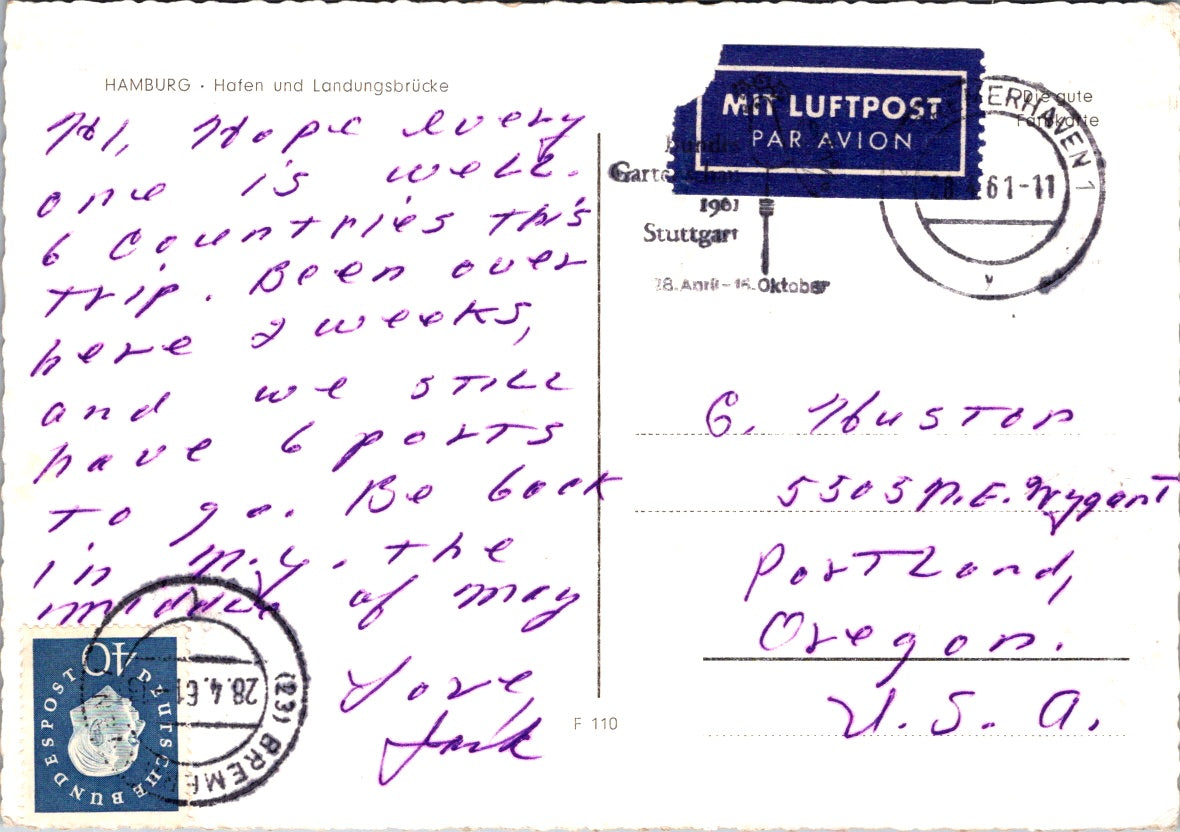 HAMBURG · Hafen und Landungsbrücke
Hi, Hope every
one is well.
6 Countries this
trip. Been over
here 2 weeks,
and we still
have 6 ports
to go. Be back
in N.Y. the
middle of May
Love,
Jack
DEUTSCHE BUNDESPOST
40
(23) BREME
28.4.61
F 110
MIT LUFTPOST
PAR AVION
Die gute
Farbkarte
ERHAVEN 1
61-11
y
Bundes
Garten
1961
Stuttgart
28. April - 15. Oktober
G. Huston
5505 N.E. Wygant
Portland,
Oregon.
U.S.A.